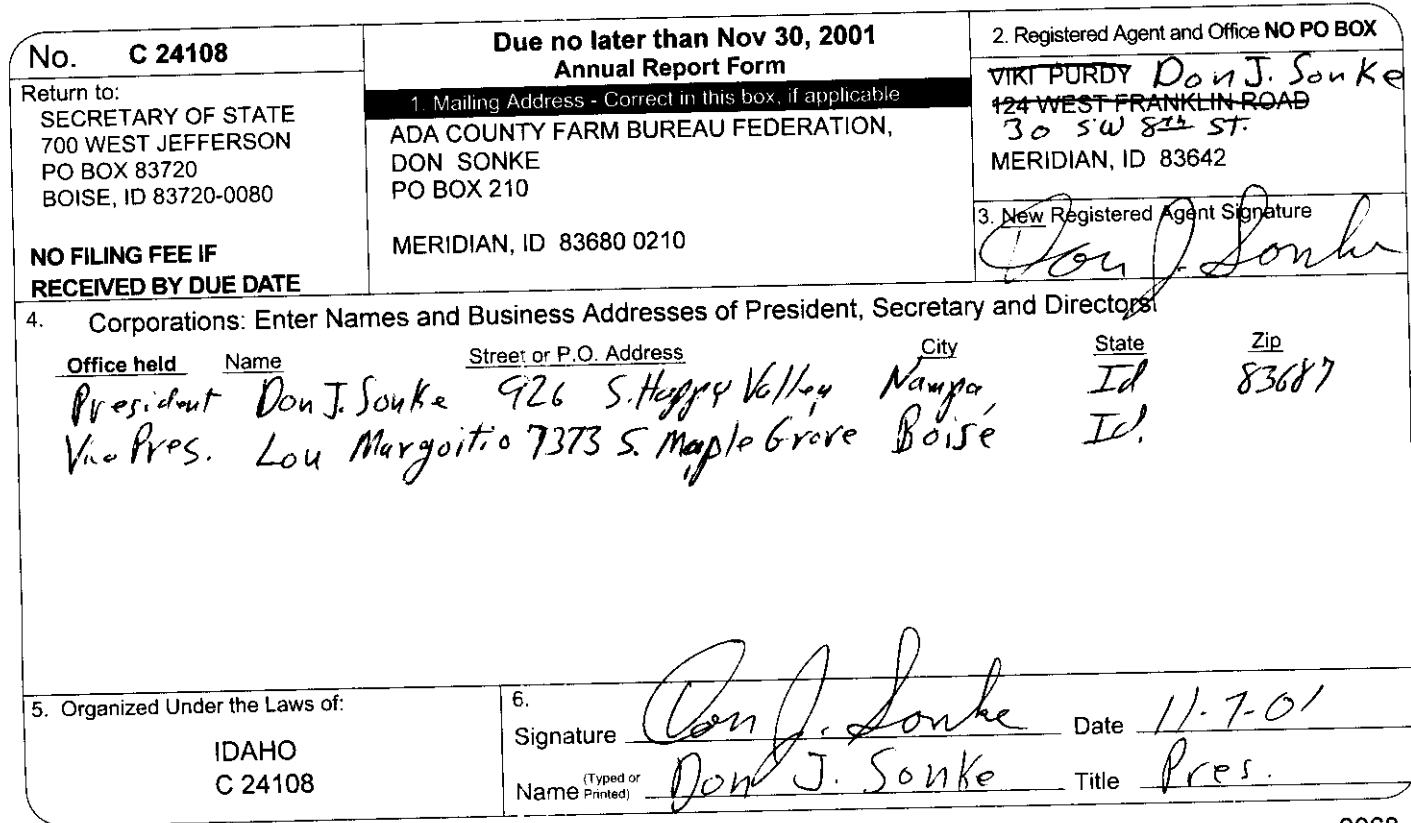 No. C 24108
Return to:
SECRETARY OF STATE
700 WEST JEFFERSON
PO BOX 83720
BOISE, ID 83720-0080
NO FILING FEE IF
RECEIVED BY DUE DATE
Due no later than Nov 30, 2001
Annual Report Form
1. Mailing Address - Correct in this box, if applicable
ADA COUNTY FARM BUREAU FEDERATION,
DON SONKE
PO BOX 210
MERIDIAN, ID 83680 0210
2. Registered Agent and Office NO PO BOX
VIKI PURDY Don J. Sonke
124 WEST FRANKLIN ROAD
30 SW 8th ST.
MERIDIAN, ID 83642
3. New Registered Agent Signature
Don J. Sonke
4. Corporations: Enter Names and Business Addresses of President, Secretary and Directors
Office held Name Street or P.O. Address City State Zip
President Don J. Sonke 926 S. Happy Valley Nampa, Id 83687
Vice Pres. Lou Murgoitio 7373 S. Maple Grove Boise Id.
5. Organized Under the Laws of:
IDAHO
C 24108
6.
Signature Don J. Sonke Date 11-7-01
Name (Typed or Printed) Don J. Sonke Title Pres.